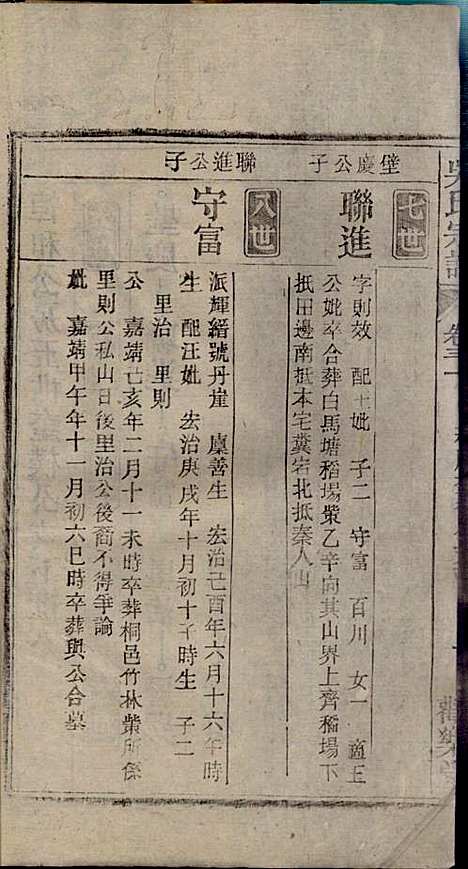 吳氏宗譜
卷三
七世
璧慶公子
聯進
字則效 配王妣 子二 守富 百川 女一 適王
公妣卒合葬白馬塘稻場塋乙辛向其山界上齊稻場下
抵田邊南抵本宅糞宕北抵秦人山
八世
聯進公子
守富
派輝縉號丹崖 廩善生 宏治己酉年六月十六午時
生 配汪妣 宏治庚戌年十月初十子時生 子二
里治 里則
公 嘉靖己亥年二月十一未時卒葬桐邑竹林塋所係
里則公私山日後里治公後裔不得爭論
妣 嘉靖甲午年十一月初六巳時卒葬與公合墓